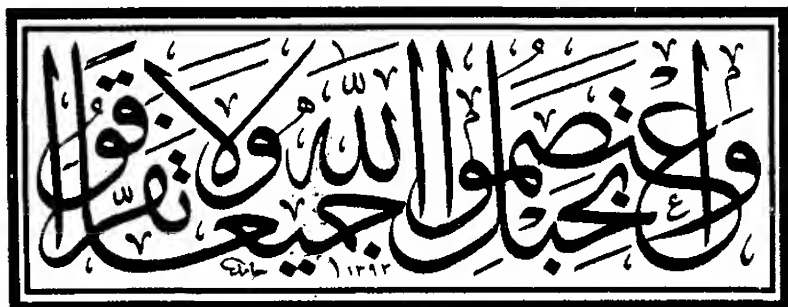 واعتصموا بحبل الله جميعا ولا تفرقوا
١٣٩٢